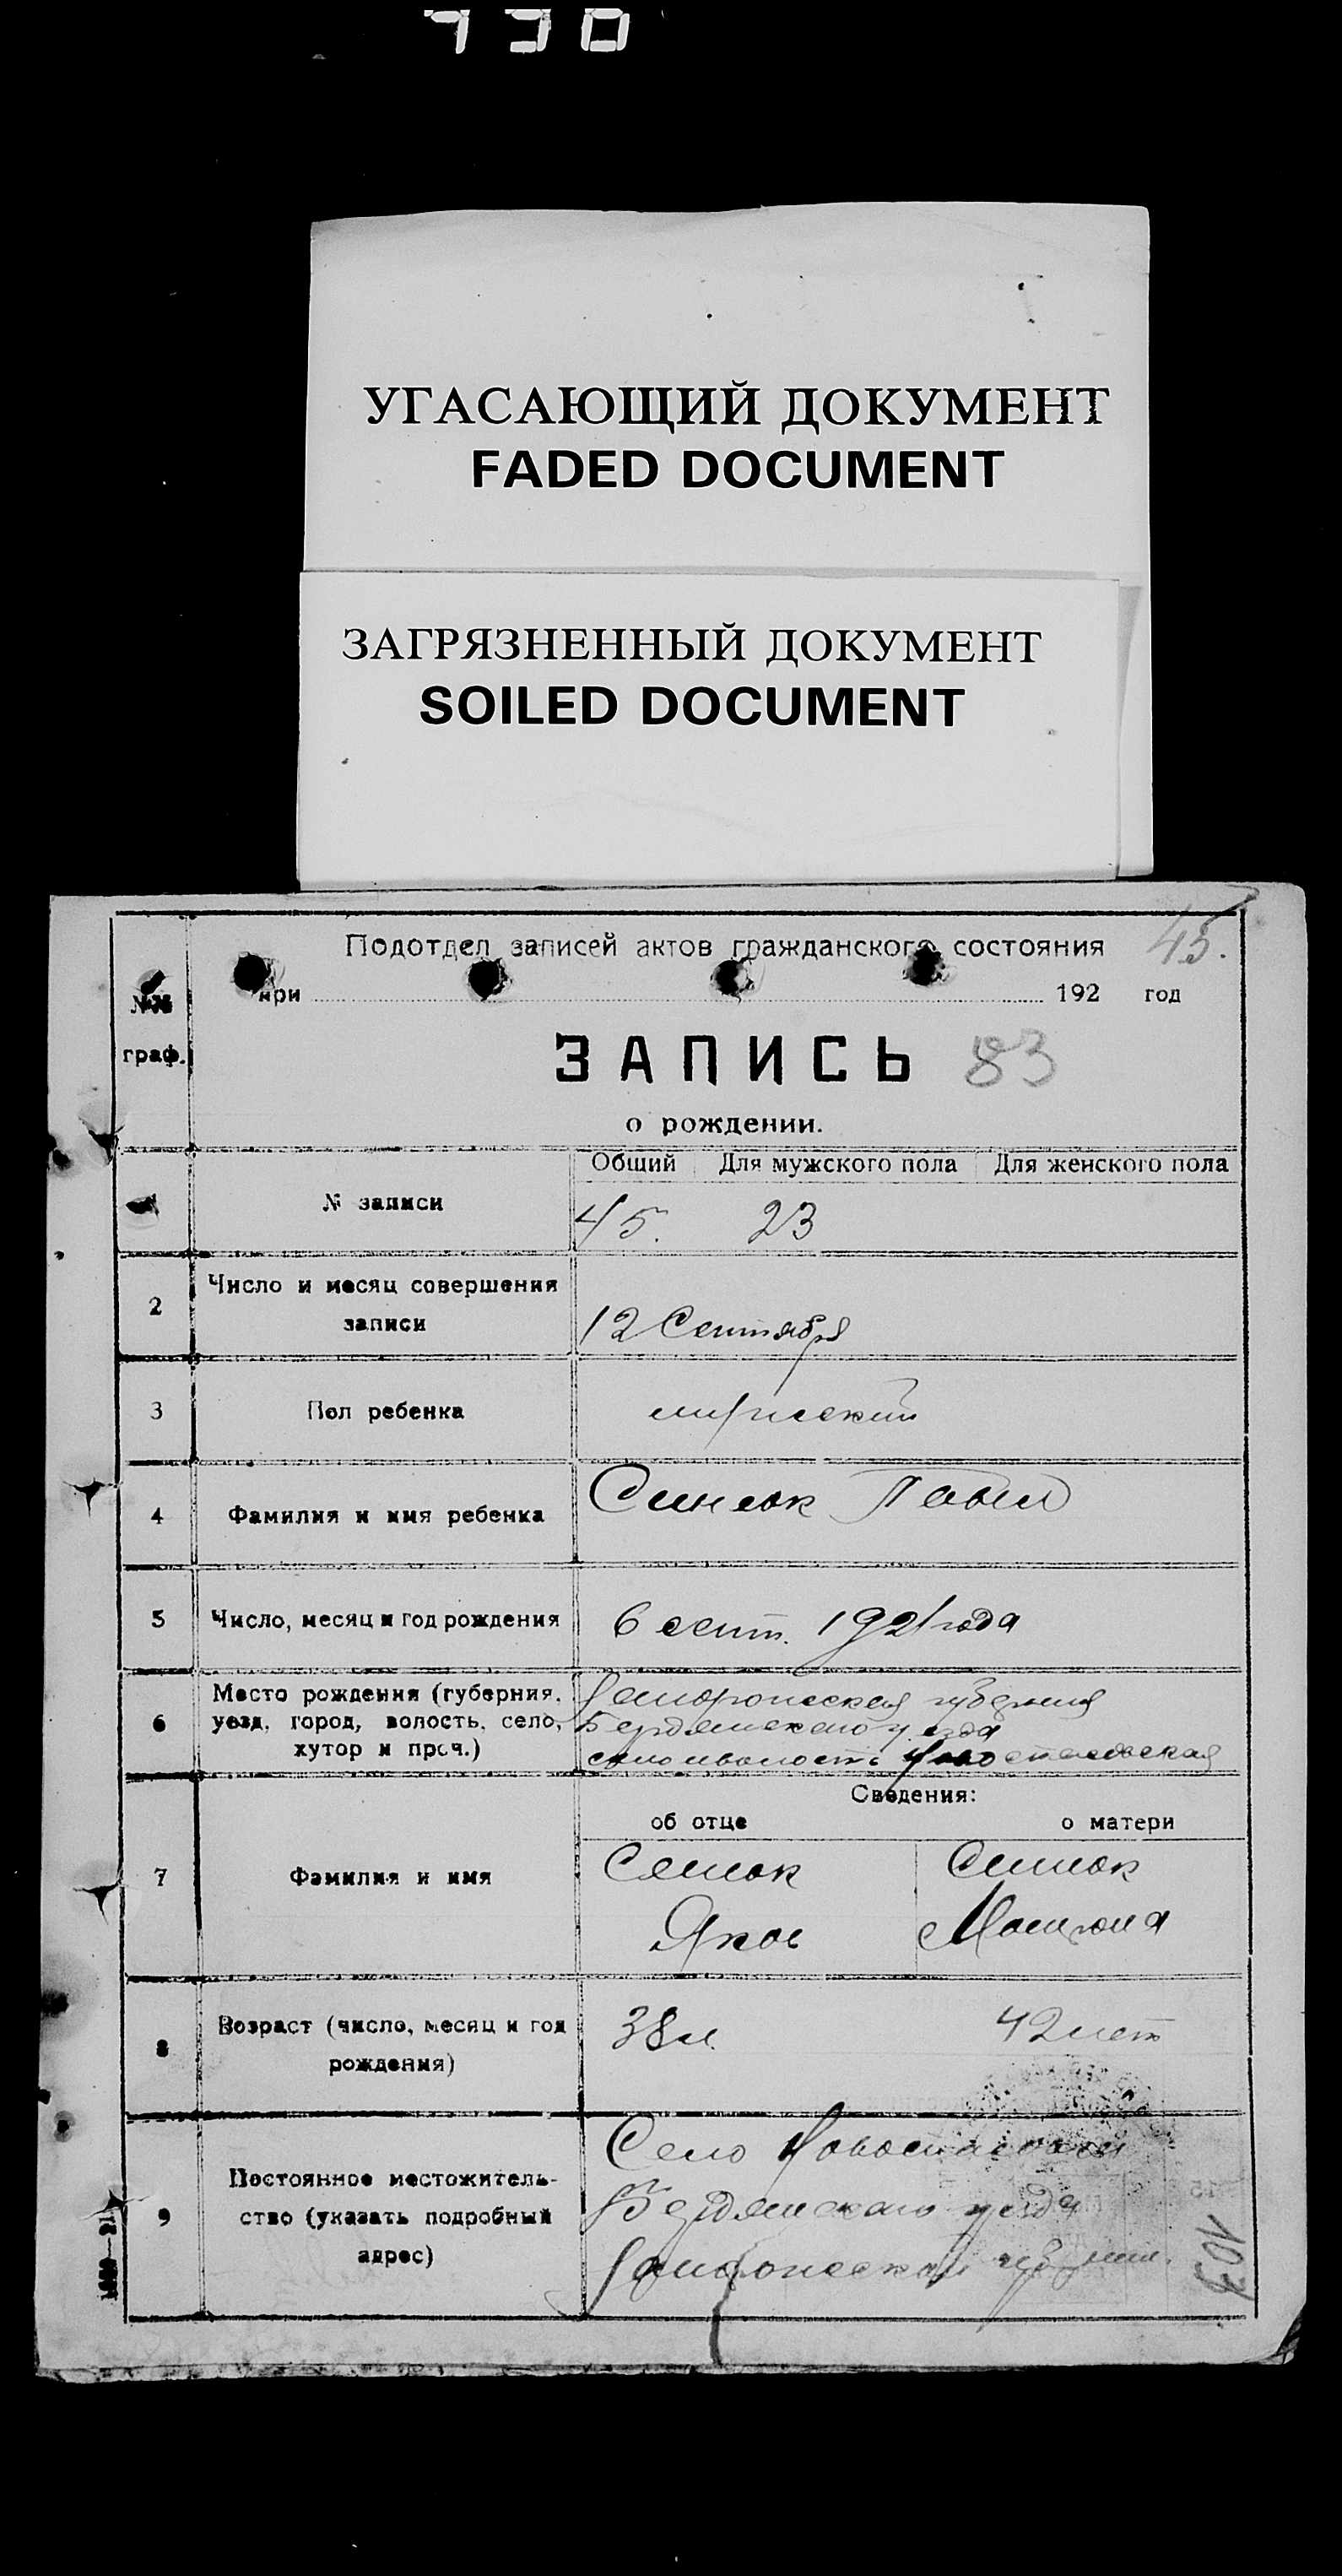 УГАСАЮЩИЙ ДОКУМЕНТ
FADED DOCUMENT
ЗАГРЯЗНЕННЫЙ ДОКУМЕНТ
SOILED DOCUMENT
45.
Подотдел записей актов гражданского состояния
при 192 год
№№
граф.
ЗАПИСЬ 83
о рождении.
Общий Для мужского пола Для женского пола
1 № записи 45. 23
2 Число и месяц совершения
записи
12 Сентября
3 Пол ребенка мужеский
4 Фамилия и имя ребенка Синюк Павел
5 Число, месяц и год рождения 6 сент. 1921 года
6 Место рождения (губерния,
уезд, город, волость, село,
хутор и проч.)
губерния
Бердянского уезда
село волость
Сведения:
об отце о матери
7 Фамилия и имя
Синюк Синюк
Яков
8 Возраст (число, месяц и год
рождения)
38 л. 42 лет
9 Постоянное местожитель-
ство (указать подробный
адрес)
Село
Бердянского уезда
103